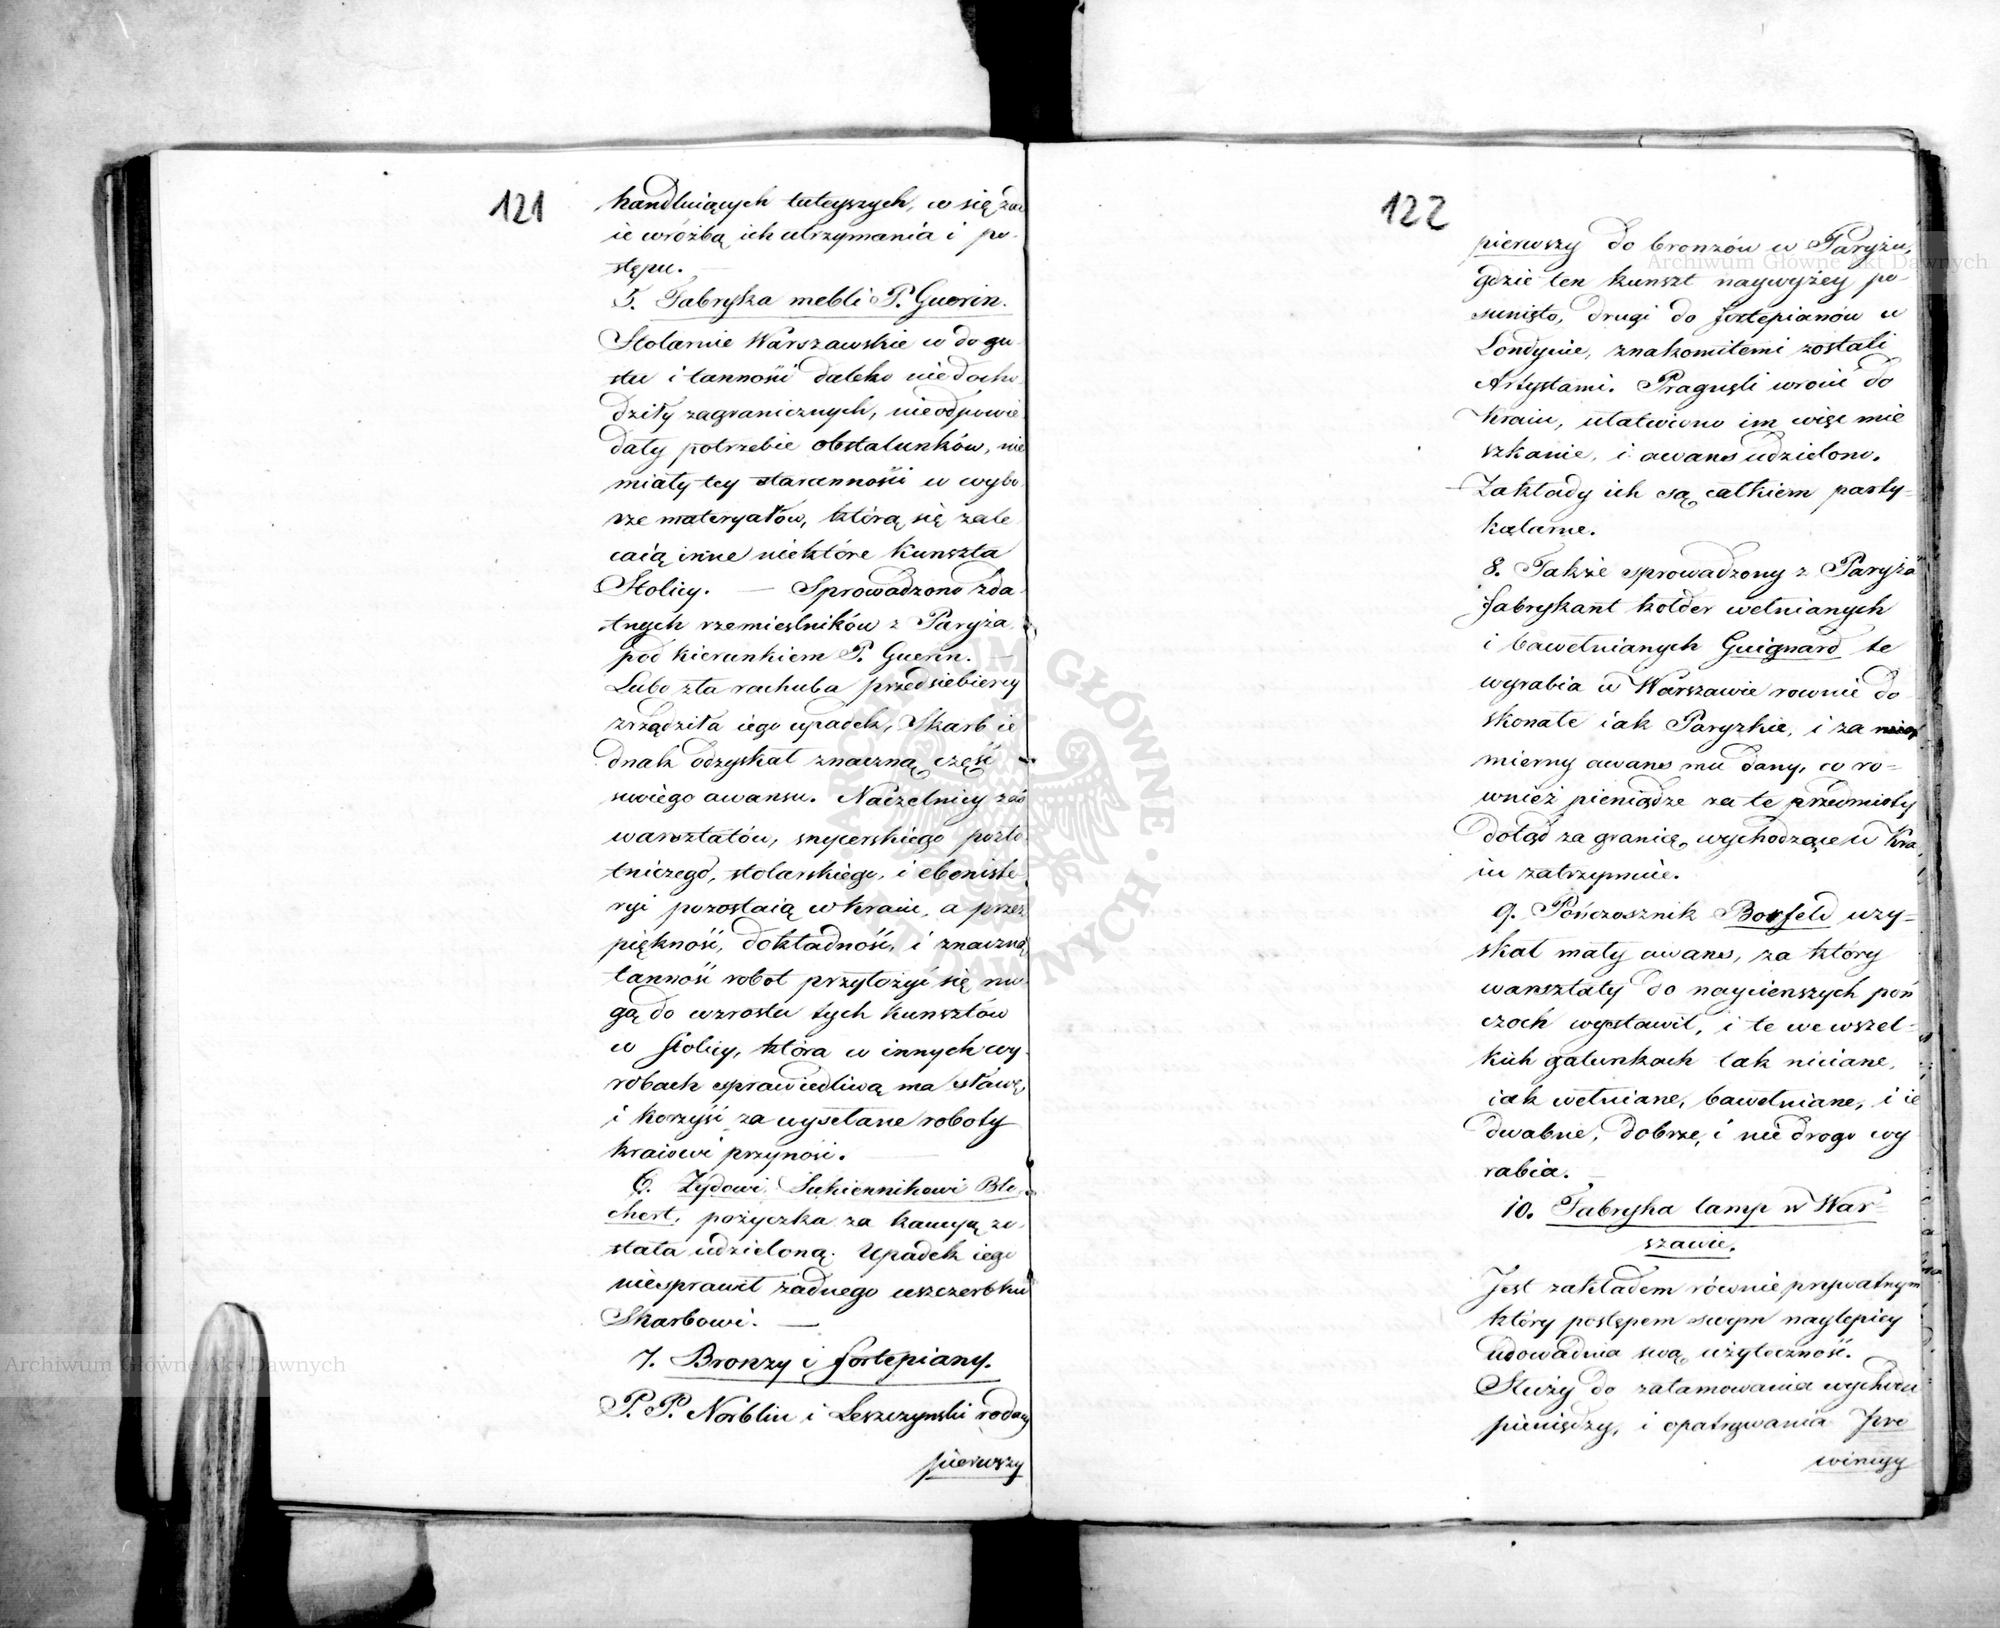 121
handluiących tuteyszych, co się za
ie wróżbą ich utrzymania i po-
stępu.
5. Fabryka mebli P. Guerin.
Stolarnie Warszawskie co do gu-
stu i tanności daleko nie docho-
dziły zagranicznych, nie odpowie-
dały potrzebie obstalunków, nie
miały tey staranności w wybo-
rze materyałów, którą się zale-
caią inne niektóre kunszta
Stolicy. — Sprowadzono zda-
tnych rzemieślników z Paryża
pod kierunkiem P. Guerin. —
Lubo zła rachuba przedsiebiercy
zrządziła iego upadek, Skarb ie-
dnak odzyskał znaczną część
swiego awansu. Naczelnicy zaś
warsztatów, snycerskiego pozło-
tniczego, stolarskiego, i ebeniste-
ryi pozostaią w kraiu, a przez
piękność, dokładność, i znaczną
tanność robot przyłożyć się mo-
gą do wzrostu tych kunsztów
w stolicy, która w innych wy-
robach sprawiedliwą ma sławę,
i korzyść za wysełane roboty
kraiowi przynosi. —
6. Żydowi Sukiennikowi Ble-
chert, pożyczka za kaucyą zo-
stała udzieloną. Upadek iego
niesprawił żadnego uszczerbku
Skarbowi. —
7. Bronzy i fortepiany.
P. P. Norblin i Leszczynski rodacy
pierwszy
122
pierwszy do bronzów w Paryżu,
gdzie ten kunszt naywyżey po-
sunięto, drugi do fortepianów w
Londynie, znakomitemi zostali
Artystami. Pragnęli wrócić do
Kraiu, ułatwiono im więc mie
szkanie, i awans udzielono.
Zakłady ich są całkiem party-
kularne.
8. Także sprowadzony z Paryża
fabrykant kołder wełnianych
i bawełnianych Guignard te
wyrabia w Warszawie rownie do-
skonałe iak Paryzkie, i za
mierny awans mu dany, co ro-
wnież pieniądze za te przedmioty
dotąd za granicę wychodzące w Kra
iu zatrzymuie.
9. Pończosznik Borfeld uzy-
skał mały awans, za który
warsztaty do naycienszych poń
czoch wystawił, i te we wszel-
kich gatunkach tak niciane,
iak wełniane, bawełniane, i ie
dwabne, dobrze, i nie drogo wy
rabia. —
10. Fabryka lamp w War-
szawie.
Jest zakładem równie prywatnym
który postępem swym naylepiey
udowadnia swą użyteczność.
Służy do zatamowania wychodu
pieniędzy, i opatrywania Pro
wincyy
Archiwum Główne Akt Dawnych
Archiwum Główne Akt Dawnych
ARCHIWUM GŁÓWNE AKT DAWNYCH